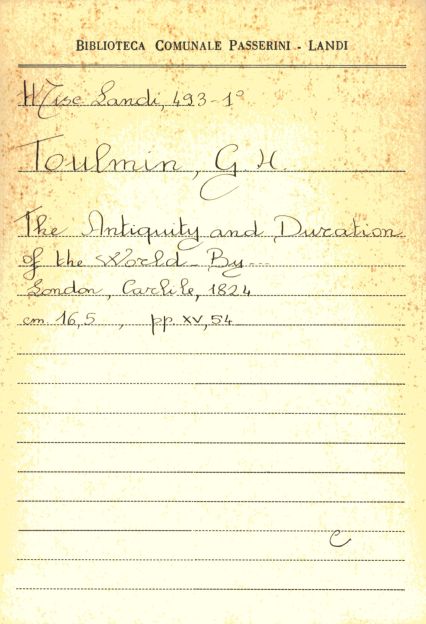 BIBLIOTECA COMUNALE PASSERINI - LANDI
Misc Landi, 493-1°
Toulmin, G. H.
The Antiquity and Duration
of the World - By...
London, Carlile, 1824
cm. 16,5 , pp. XV, 54
C